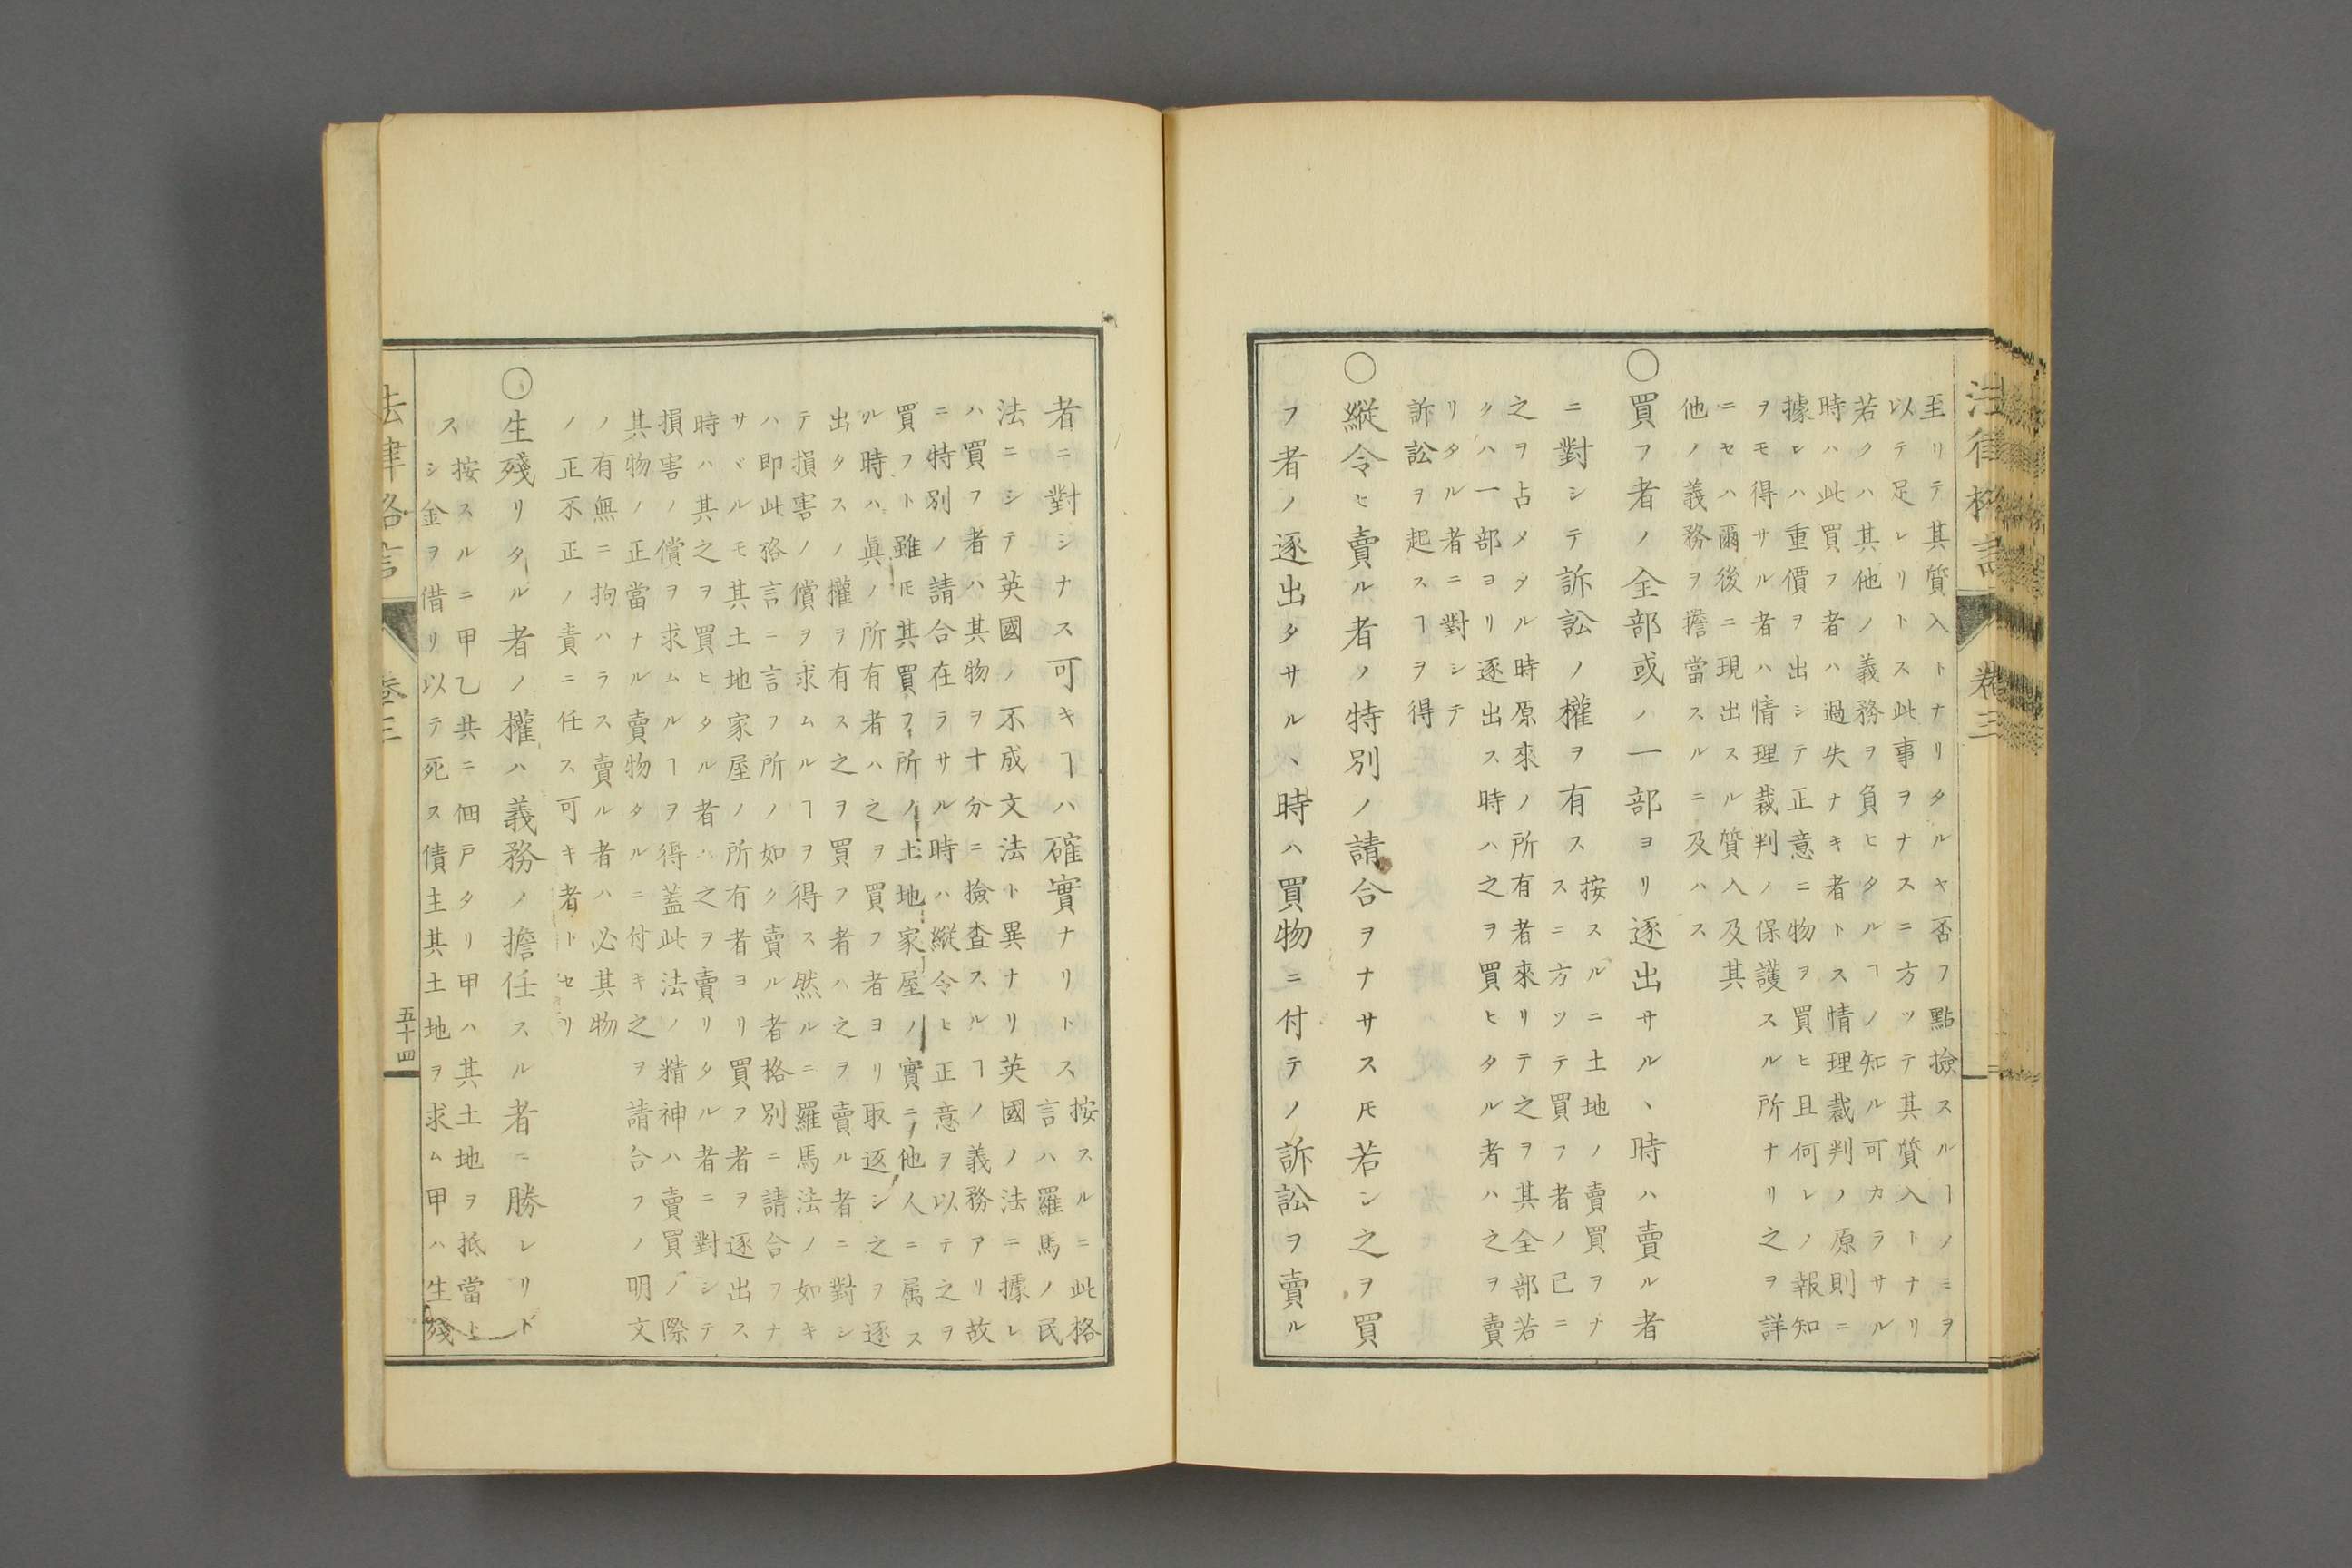 法律格言
卷三
至リテ其質入トナリタルヤ否フ點撿スルーノミヲ
以テ足レリトス此事ヲナスニ方ツテ其質入トナリ
若クハ其他ノ義務ヲ負ヒタルヿノ知ル可カラサル
時ハ此買フ者ハ過失ナキ者トス情理裁判ノ原則ニ
據レハ重價ヲ出シテ正意ニ物ヲ買ヒ且何レノ報知
ヲモ得サル者ハ情理裁判ノ保護スル所ナリ之ヲ詳
ニセハ爾後ニ現出スル質入及其
他ノ義務ヲ擔當スルニ及ハス
○買フ者ノ全部或ハ一部ヨリ逐出サル、時ハ賣ル者
ニ對シテ訴訟ノ權ヲ有ス
按スルニ土地ノ賣買ヲナ
スニ方ツテ買フ者ノ已ニ
之ヲ占メタル時原來ノ所有者來リテ之ヲ其全部若
クハ一部ヨリ逐出ス時ハ之ヲ買ヒタル者ハ之ヲ賣
リタル者ニ對シテ
訴訟ヲ起スヿヲ得
○縱令ヒ賣ル者ノ特別ノ請合ヲナサスㇳモ若シ之ヲ買
フ者ノ逐出タサル、時ハ買物ニ付テノ訴訟ヲ賣ル
者ニ對シナス可キヿハ確實ナリトス
按スルニ此格
言ハ羅馬ノ民
法ニシテ英國ノ不成文法ト異ナリ英國ノ法ニ據レ
ハ買フ者ハ其物ヲ十分ニ撿査スルヿノ義務アリ故
ニ特別ノ請合在ラサル時ハ縱令ヒ正意ヲ以テ之ヲ
買フト雖ㇳモ其買フ所ノ土地家屋ノ實ニ他人ニ属ス
ル時ハ眞ノ所有者ハ之ヲ買フ者ヨリ取返シ之ヲ逐
出タスノ權ヲ有ス之ヲ買フ者ハ之ヲ賣ル者ニ對シ
テ損害ノ償ヲ求ムルヿヲ得ス然ルニ羅馬法ノ如キ
ハ即此格言ニ言フ所ノ如ク賣ル者格別ニ請合フナ
サヾルモ其土地家屋ノ所有者ヨリ買フ者ヲ逐出ス
時ハ其之ヲ買ヒタル者ハ之ヲ賣リタル者ニ對シテ
損害ノ償ヲ求ムルヿヲ得蓋此法ノ精神ハ賣買ノ際
其物ノ正當ナル賣物タルニ付キ之ヲ請合フノ明文
ノ有無ニ拘ハラス賣ル者ハ必其物
ノ正不正ノ責ニ任ス可キ者トセリ
○生殘リタル者ノ權ハ義務ノ擔任スル者ニ勝レリト
ス
按スルニ甲乙共ニ佃戸タリ甲ハ其土地ヲ抵當ト
シ金ヲ借リ以テ死ス債主其土地ヲ求ム甲ハ生殘
法律格言
卷三
五十四